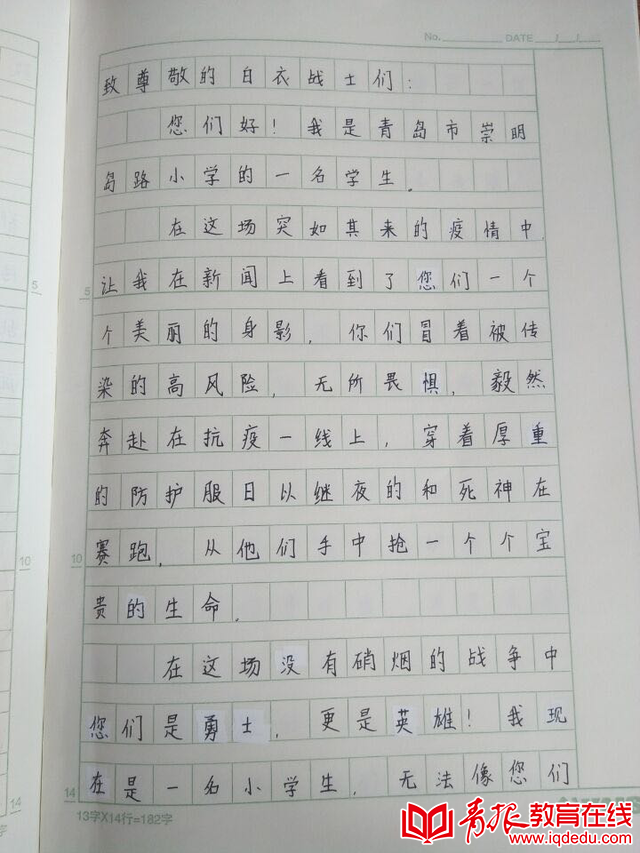 No. DATE / /
致尊敬的白衣战士们:
您们好!我是青岛市崇明
岛路小学的一名学生.
在这场突如其来的疫情中.
让我在新闻上看到了您们一个
个美丽的身影.你们冒着被传
染的高风险,无所畏惧,毅然
奔赴在抗疫一线上,穿着厚重
的防护服日以继夜的和死神在
赛跑,从他们手中抢一个个宝
贵的生命.
在这场没有硝烟的战争中
您们是勇士,更是英雄!我现
在是一名小学生,无法像您们
5
5
10
10
14
14
13字X14行=182字
青报教育在线
www.iqdedu.com